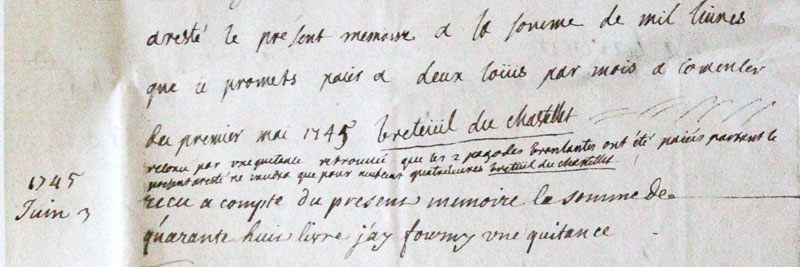 aresté le present memoire a la somme de mil livres
que ie promets paier a deux loüis par mois a comencer
du premier mai 1745 breteüil du chastellet
retenu par une quitance retrouvée que les 2 pagodes branlantes ont été paiées partant le
present aresté ne vaudra que pour neufcent quatre livres breteüil du chastellet
1745
Juin 3
recu a compte du present memoire la somme de
quarante huit livre j'ay fourny une quitance